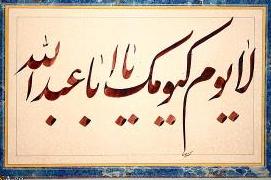 لا یوم کیومک یا ابا عبدالله